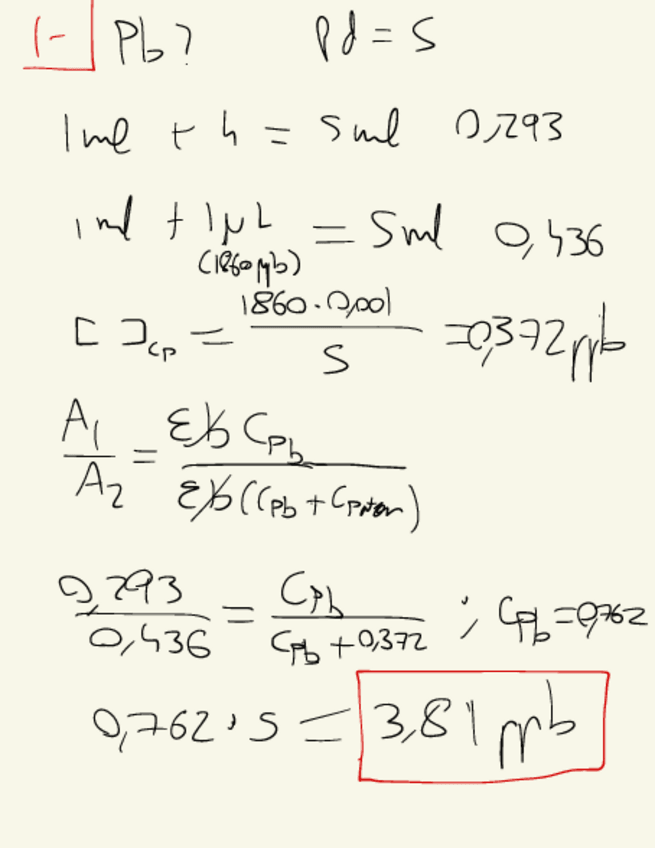 1- Pb? Pd = 5
1 ml + h = 5 ml 0,293
1 ml + 1 μL = 5 ml 0,436
(1860 ppb)
[ ]cp = 1860 · 0,001 / 5 = 0,372 ppb
A1 / A2 = Ɛb CPb / Ɛb (CPb + Cpatron)
0,293 / 0,436 = CPb / CPb + 0,372 ; CPb = 0,762
0,762 · 5 = 3,81 ppb